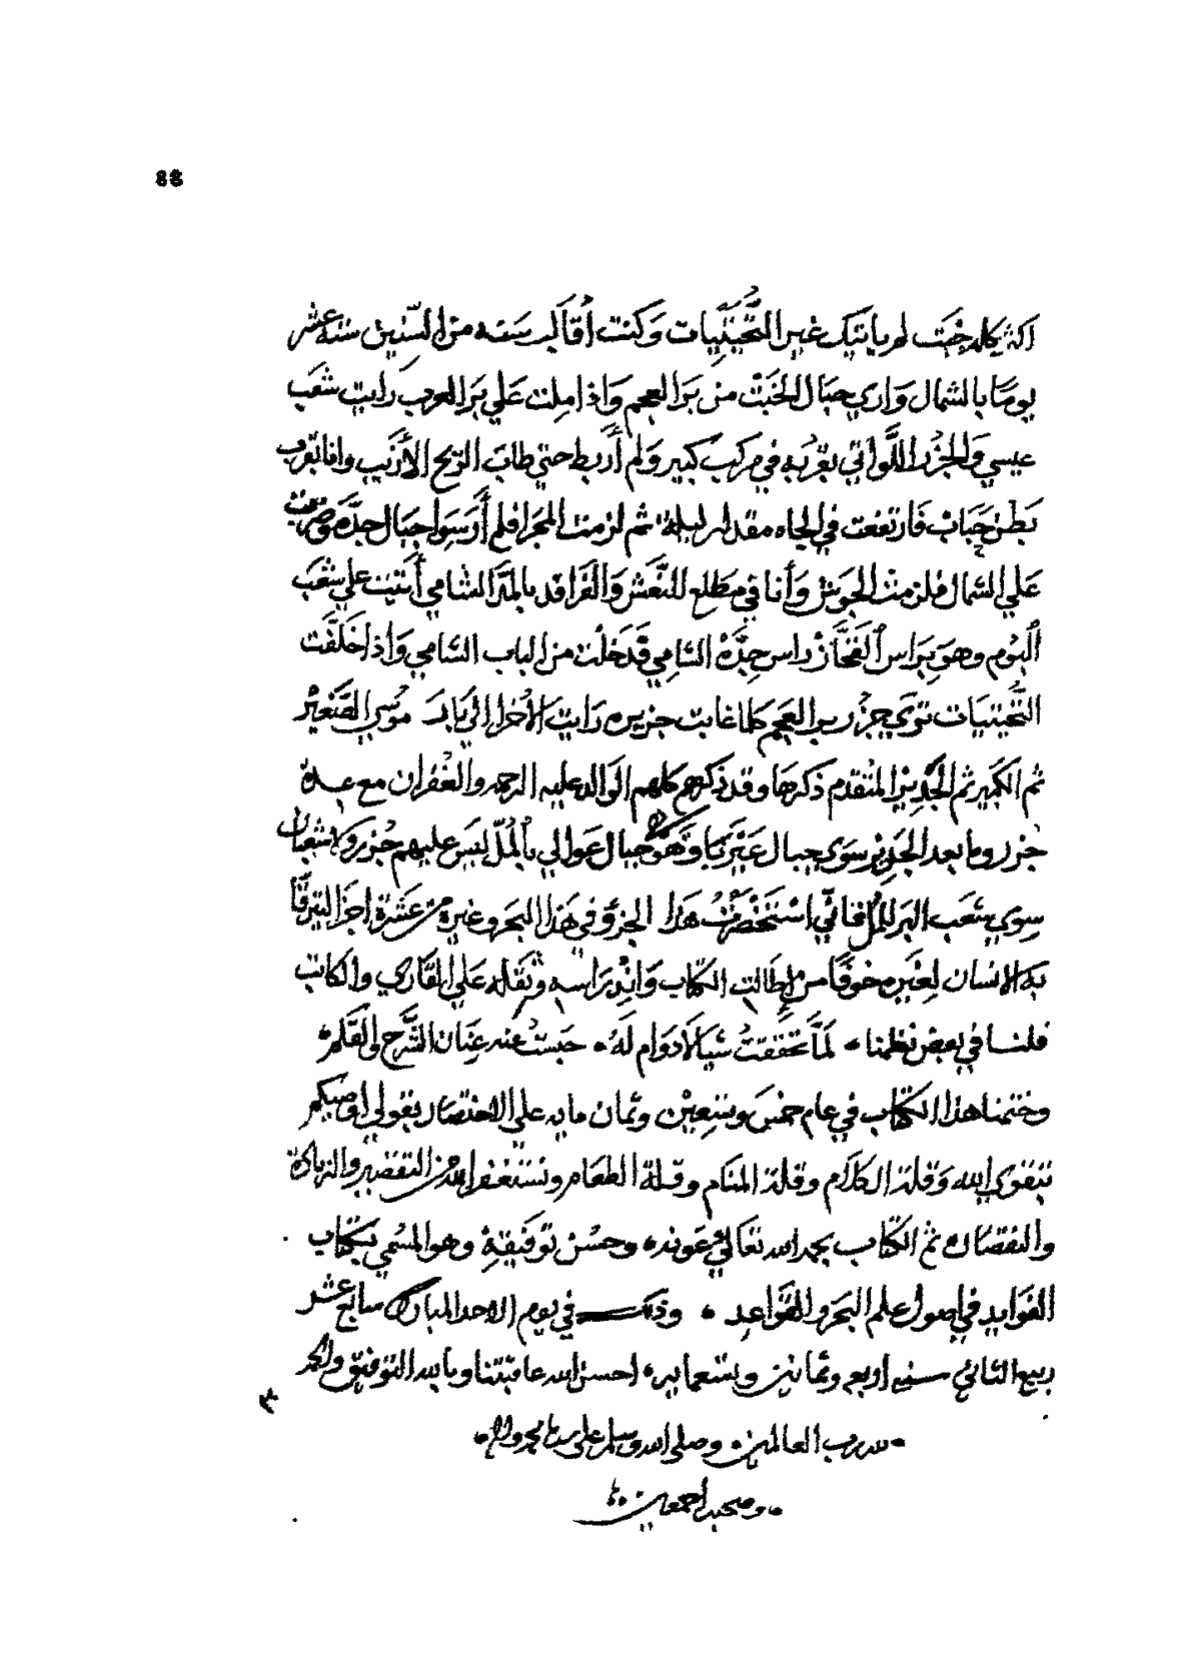 88
اكثر كلما خبت لم ياتيك غير التحيتيات وكنت أقابل سنه من السنين ستة عشر
يومًا بالشمال واري جبال الخبت من بر العجم واذا ملت علي بر العرب رايت شعب
عيسي والجزر اللواتي بقربه في مركب كبير ولم أربط حتي طاب الريح الأزيب وانا بقرب
بطن جباب فارتفعت في الجاه مقدار ليلة ثم لزمت المجرا فلم أرسوا جبال جدّه وضربت
علي الشمال فلزمت الجوش وأنا في مطلع النعش والفراقد بالمترا الشامي أتيت علي شعب
البوم وهو براس الفحاز راس جدّه الشامي قدخلت من الباب الشامي واذا خلفت
التحيتيات تري جزر بر العجم كلما غابت جزيره رايت الأخرا الي يابد موسي الصغير
ثم الكبير ثم الجدير المتقدم ذكرها وقد ذكرهم كلهم الوالد عليه الرحمه والغفران مع عدة
جزر وما بعد الجدير سوي جبال عيرب وهو جبال عوالي بالمل ليس عليهم جزر ولا شعبان
سوي شعب البر للملاقاتي استخضرت هذا الجزؤ في هذا البحر وغيره من عشرة اجزا ليترقا
به الانسان لغيره خوفًا من إطالت الكتاب وانداراسه وثقله علي القاري والكاتب
قلنا في بعض نظمنا • لمّا تحققت شيا لا دوام له • حبست عنه عنان الشرح والقلم •
وختمنا هذا الكتاب في عام خمس وتسعين وثمان مايه علي الاختصار بقولي اوصيكم
بتقوي الله وقلة الكلام وقلة المنام وقلة الطعام ونستغفر الله من التقصير والزيادة
والنقصان تم الكتاب بحمد الله تعالي وعونه • وحسن توفيقه وهو المسمي بكتاب
الفوايد في اصول علم البحر والقواعد • وذلك في يوم الاحد المبارك سابع عشر
ربيع الثاني سنه اربع وثمانين وتسعمايه • احسن الله عاقبتنا وبالله التوفيق والحمد
• لله رب العالمين • وصلي الله وسلم علي سيدنا محمد واله •
• وصحبه اجمعين •